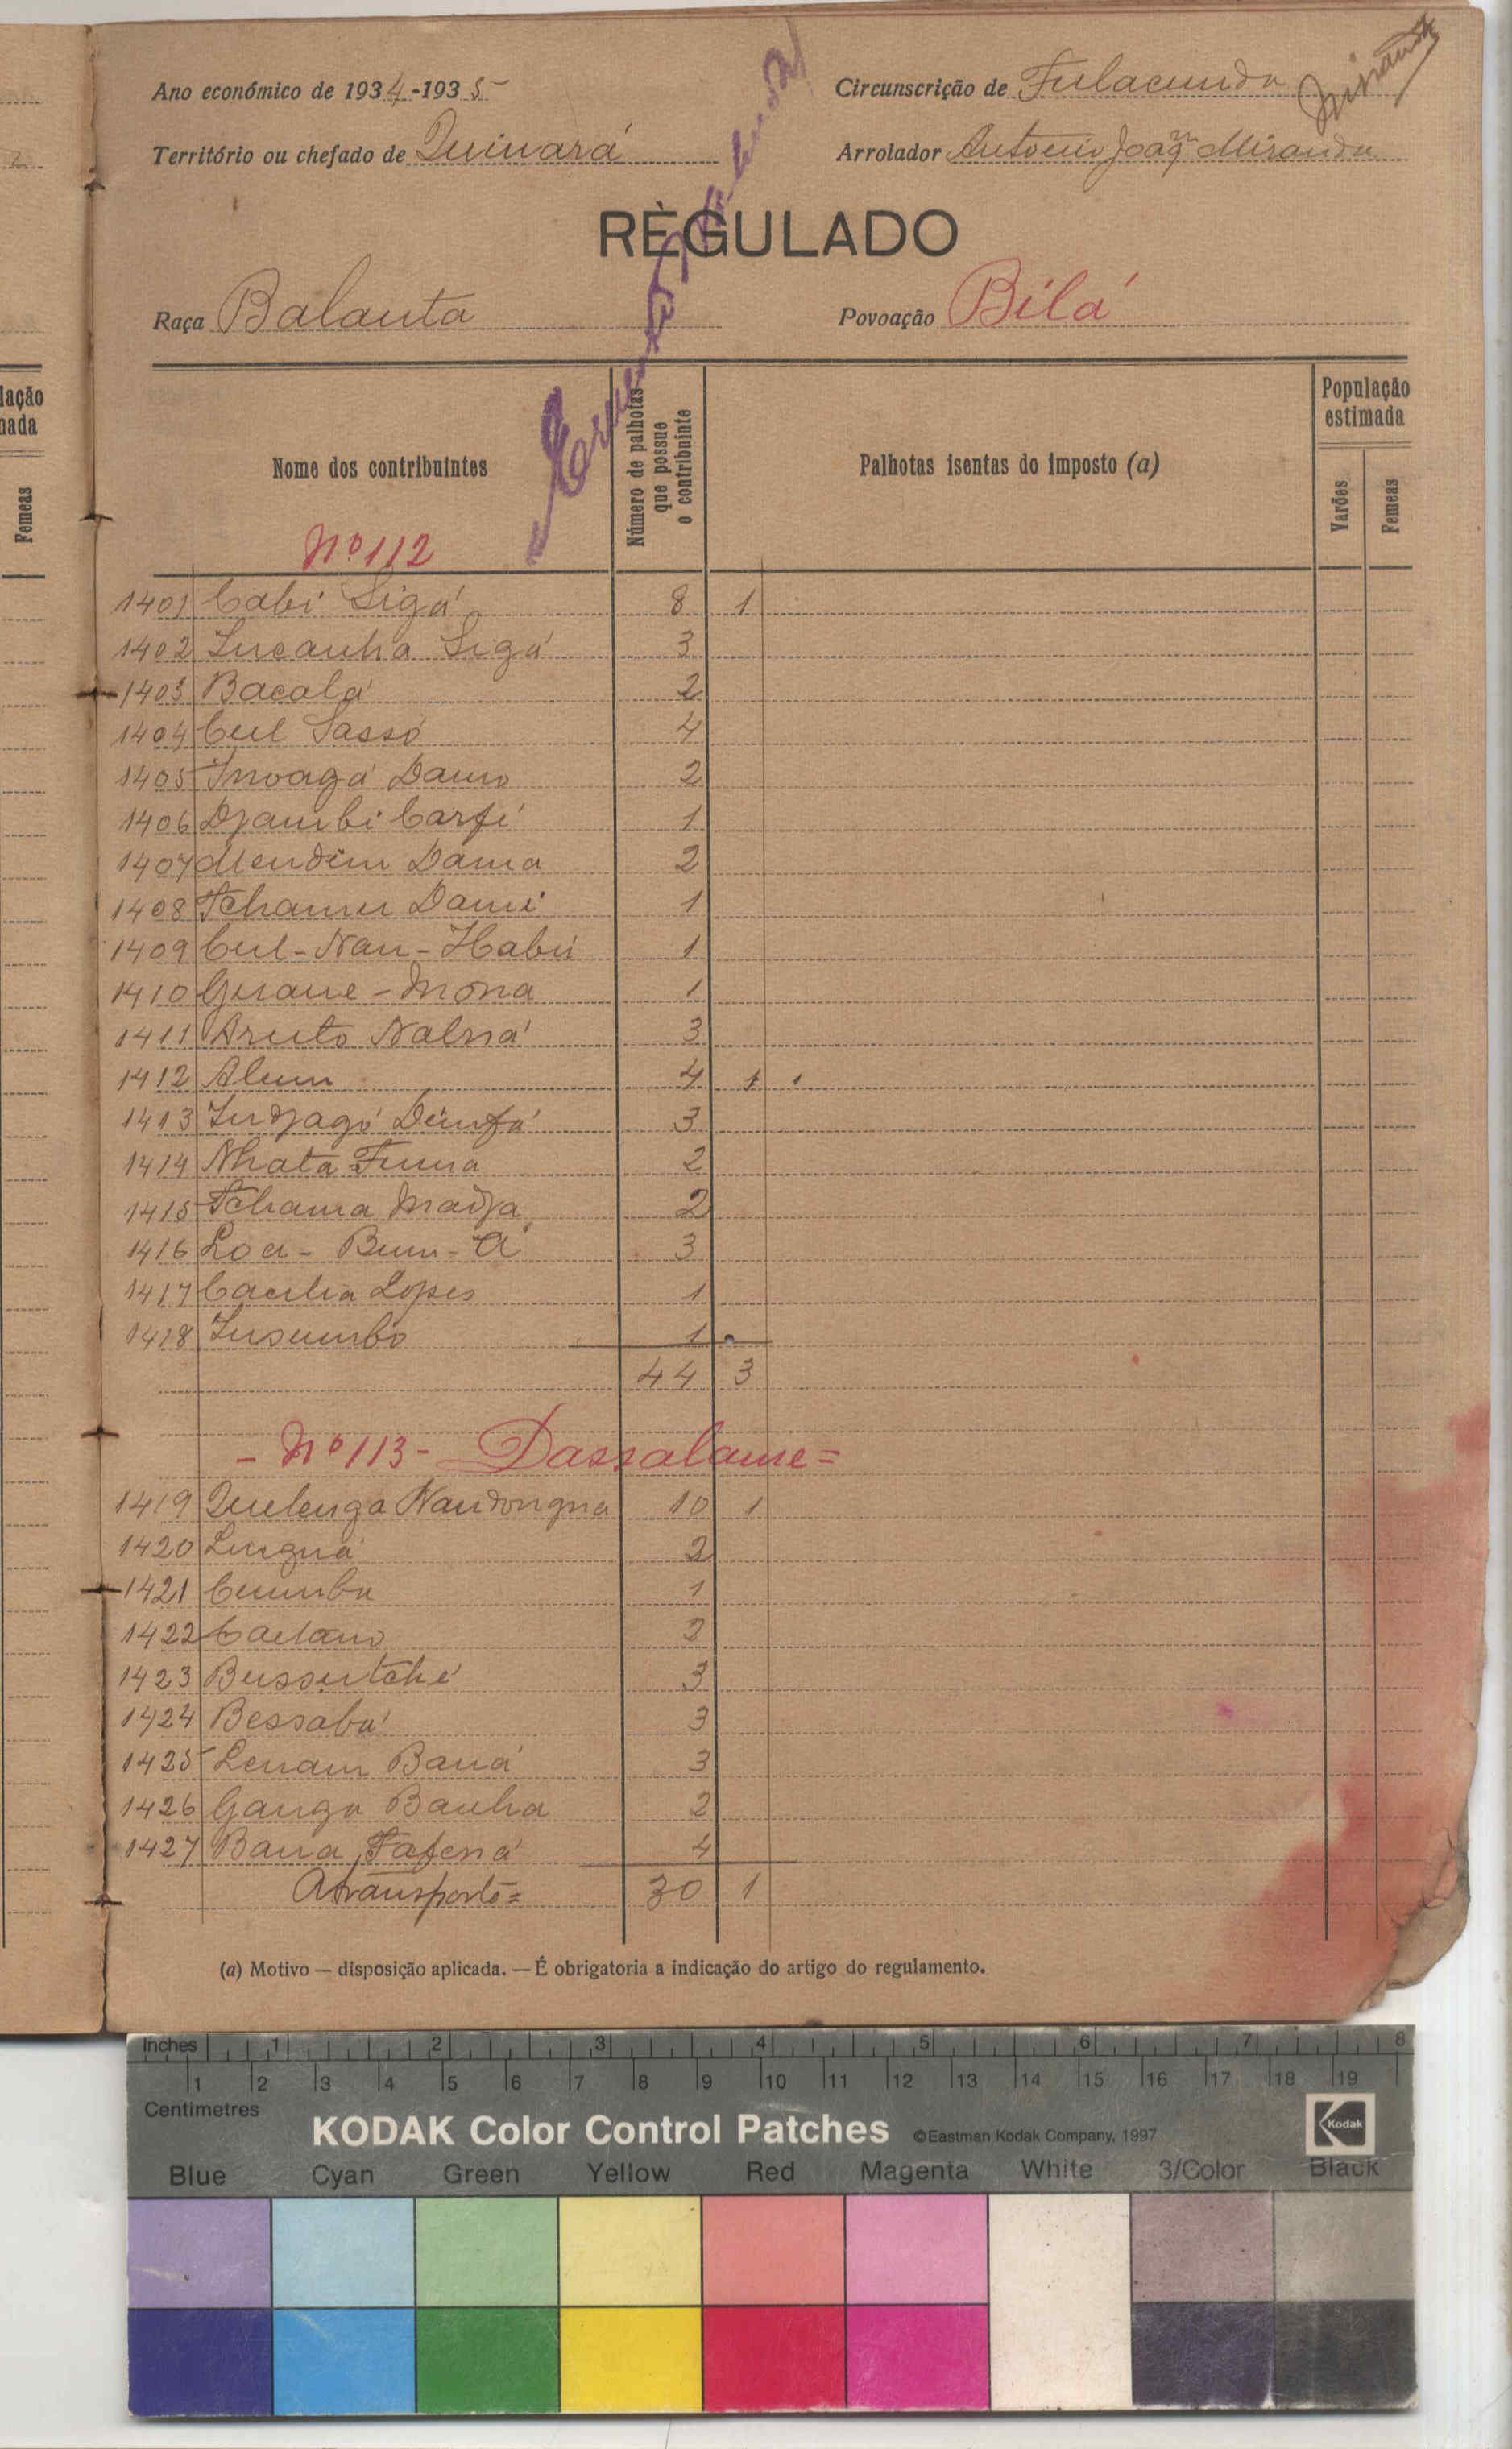 Ano económico de 1934-1935
Circunscrição de Fulacunda
Miranda
Território ou chefado de Quinará
Arrolador Antonio Joaqm Miranda
RÈGULADO
Raça Balanta
Povoação Bilá
Nome dos contribuintes
Nº 112
Número de palhotas que possue o contribuinte
Palhotas isentas do imposto (a)
População estimada
Varões
Femeas
1401 Cabi Sigá 8 1
1402 Sigá 3
1403 Bacalá 2
1404 Cul Sassó 4
1405 2
1406 Djambi 1
1407 Mendim Dama 2
1408 1
1409 Cul-Nan-Habú 1
1410 Guane-Mona 1
1411 3
1412 Alum 4 1
1413 3
1414 Nhata 2
1415 Tchama Madja 2
1416 Loa-Bum-A 3
1417 Lopes 1
1418 1
44 3
- Nº 113 - Dassalame =
1419 Quelenga Nandongna 10 1
1420 Lingná 2
1421 Cumba 1
1422 Caetano 2
1423 Bussutché 3
1424 Bessabá 3
1425 Baná 3
1426 Ganga Banha 2
1427 Bana Fafená 4
A transporte = 30 1
(a) Motivo — disposição aplicada. — É obrigatoria a indicação do artigo do regulamento.
lação
nada
Femeas
Inches 1 2 3 4 5 6 7 8
1 2 3 4 5 6 7 8 9 10 11 12 13 14 15 16 17 18 19
Centimetres
KODAK Color Control Patches ©Eastman Kodak Company, 1997 Kodak
Blue Cyan Green Yellow Red Magenta White 3/Color Black